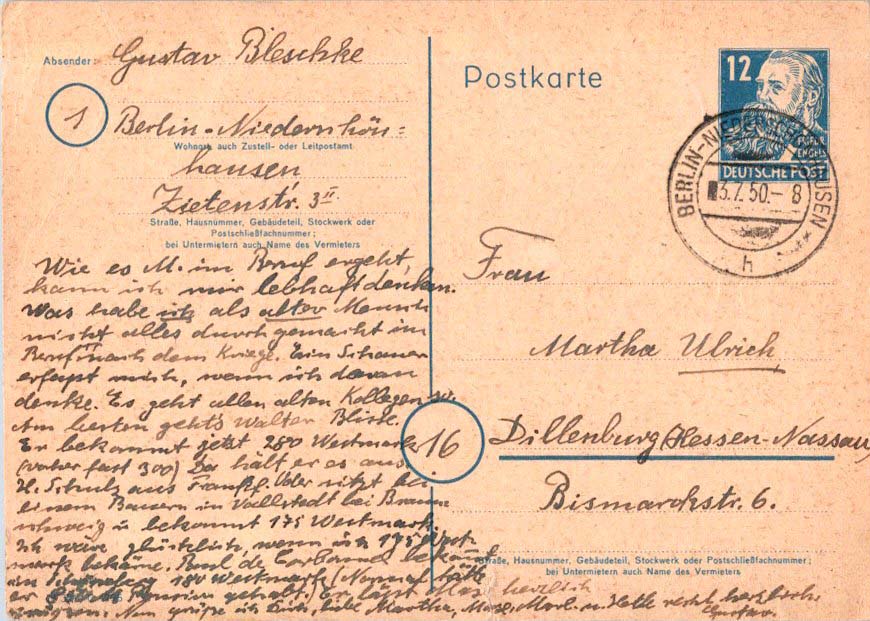 Absender: Gustav Bleschke
1
Berlin-Niederschön=
Wohnort, auch Zustell- oder Leitpostamt
hausen
Zietenstr. 3 II
Straße, Hausnummer, Gebäudeteil, Stockwerk oder
Postschließfachnummer;
bei Untermietern auch Name des Vermieters
Wie es M. im Beruf ergeht,
kann ich mir lebhaft denken.
Was habe ich als alter Mensch
nicht alles durchgemacht im
Beruf nach dem Kriege. Ein Schauer
erfaßt mich, wenn ich daran
denke. Es geht allen alten Kollegen so.
Am besten geht's Walter
Er bekommt jetzt 280 Westmark
(vorher fast 300) Da hält er es aus.
H. Schulz aus Frankf. Oder sitzt bei
einem Bauern in bei Braun
schweig u bekommt 175 Westmark.
Ich wäre glücklich, wenn ich 175 West
mark bekäme. Paul de bekommt
in 180 Westmark (Normal hätte
er Pension gehabt) Er
Nun grüße ich Dich, liebe Martha, u. recht herzlich
herzlich
Gustav.
Postkarte
12
DEUTSCHE POST
BERLIN-NIEDERSCHÖNHAUSEN
3.7.50.- 8
h
Frau
Martha Ulrich
16
Dillenburg (Hessen-Nassau)
Bismarckstr. 6.
Straße, Hausnummer, Gebäudeteil, Stockwerk oder Postschließfachnummer;
bei Untermietern auch Name des Vermieters